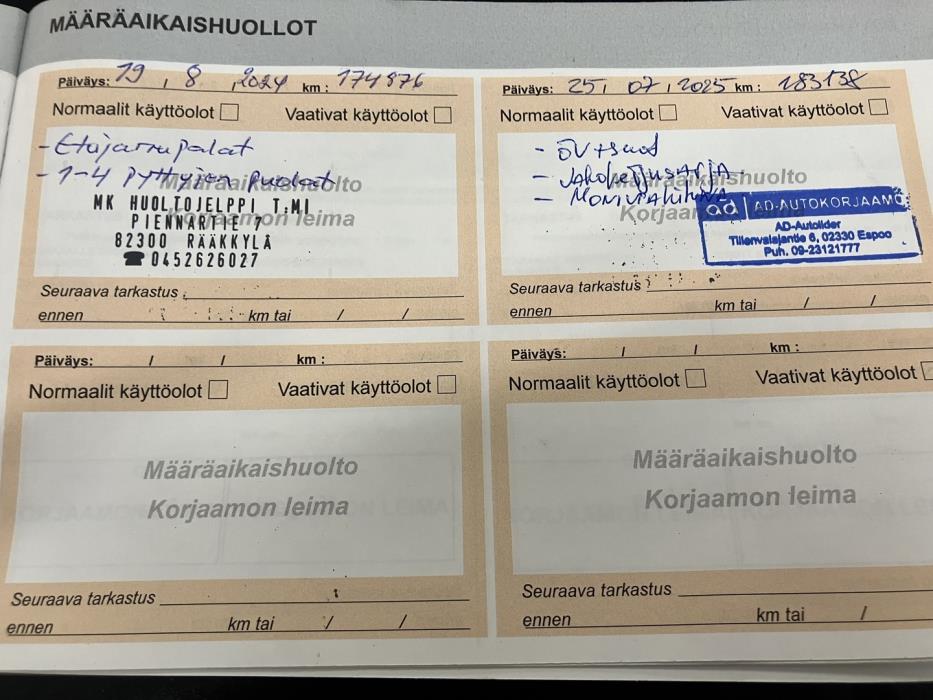 MÄÄRÄAIKAISHUOLLOT
Päiväys: 19 , 8 , 2024 km : 174876
Normaalit käyttöolot Vaativat käyttöolot
- Etujarrupalat
- 1-4 Pyttyjen Puolat
Määräaikaishuolto
Korjaamon leima
MK HUOLTOJELPPI T:MI
PIENNARTIE 7
82300 RÄÄKKYLÄ
☎ 0452626027
Seuraava tarkastus
ennen km tai / /
Päiväys: 25, 07, 2025 km : 183138
Normaalit käyttöolot Vaativat käyttöolot
- ÖV+suod
- Jakopääsarja
- Monitoimihihna
Määräaikaishuolto
Korjaamon
ad | AD-AUTOKORJAAMO
AD-Autolider
Tillinvalajantie 6, 02330 Espoo
Puh. 09-23121777
Seuraava tarkastus
ennen km tai / /
Päiväys: / / km :
Normaalit käyttöolot Vaativat käyttöolot
Määräaikaishuolto
Korjaamon leima
Seuraava tarkastus
ennen km tai / /
Päiväys: / / km :
Normaalit käyttöolot Vaativat käyttöolot
Määräaikaishuolto
Korjaamon leima
Seuraava tarkastus
ennen km tai /